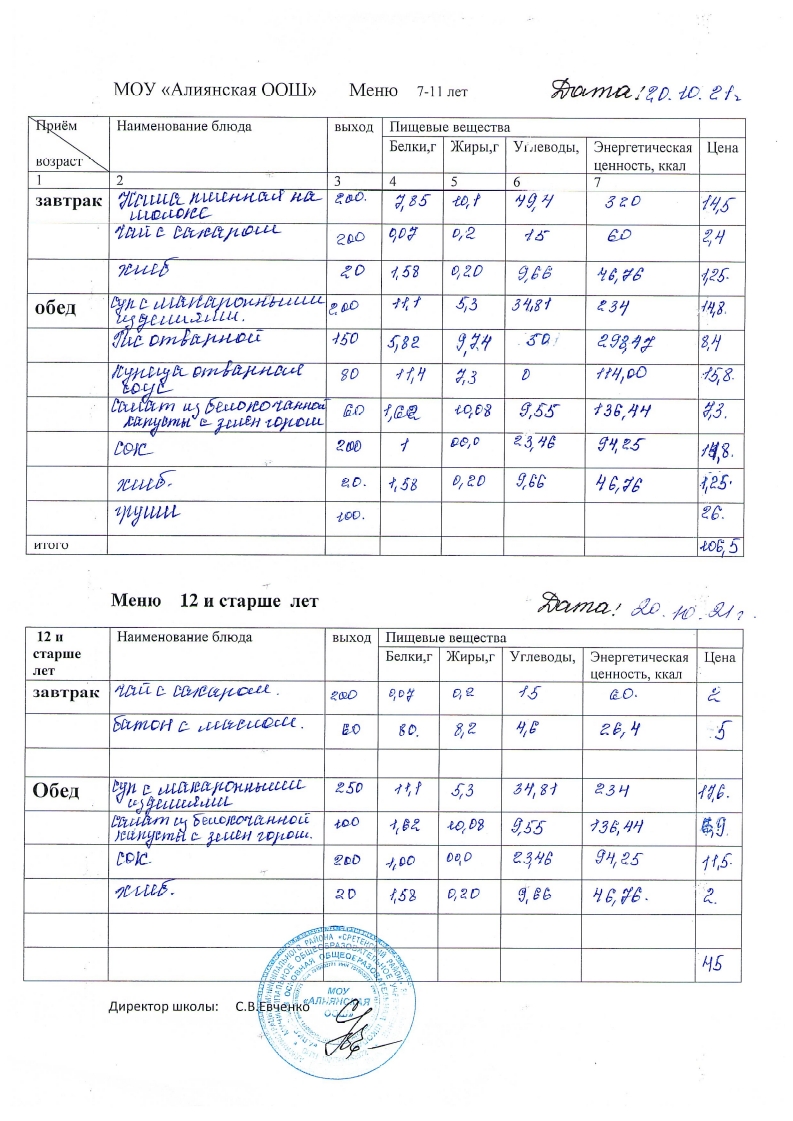 МОУ «Алиянская ООШ» Меню 7-11 лет Дата! 20.10.21г
Приём возраст Наименование блюда выход Пищевые вещества
Белки,г Жиры,г Углеводы, Энергетическая ценность, ккал Цена
1 2 3 4 5 6 7
завтрак Каша пшенная на молоке 200. 7,85 10,1 49,4 320 14,5
Чай с сахаром 200 0,07 0,2 15 60 2,4
хлеб 20 1,58 0,20 9,66 46,76 1,25.
обед Суп с макаронными изделиями. 200 11,1 5,3 34,81 234 14,8.
Рис отварной 150 5,82 9,74 50 298,47 8,4
Курица отварная соус 80 11,4 7,3 0 114,00 15,8.
Салат из белокочанной капусты с зелен горош 60 1,62 10,08 9,55 136,44 7,3.
сок 200 1 00,0 23,46 94,25 ,8.
хлеб. 20. 1,58 0,20 9,66 46,76 1,25.
груши 100. 26.
итого 106,5
Меню 12 и старше лет Дата! 20.10.21г.
12 и старше лет Наименование блюда выход Пищевые вещества
Белки,г Жиры,г Углеводы, Энергетическая ценность, ккал Цена
завтрак Чай с сахаром. 200 0,07 0,2 15 60. 2
батон с маслом. 60 80. 8,2 4,6 26,4 5
Обед Суп с макаронными изделиями 250 11,1 5,3 34,81 234 17,6.
Салат из белокочанной капусты с зелен горош. 100 1,62 10,08 9,55 136,44 6,9
сок. 200 1,00 00,0 23,46 94,25 11,5.
хлеб. 20 1,58 0,20 9,66 46,76. 2.
45
Директор школы: С.В.Евченко
МОУ
«АЛИЯНСКАЯ
ООШ»